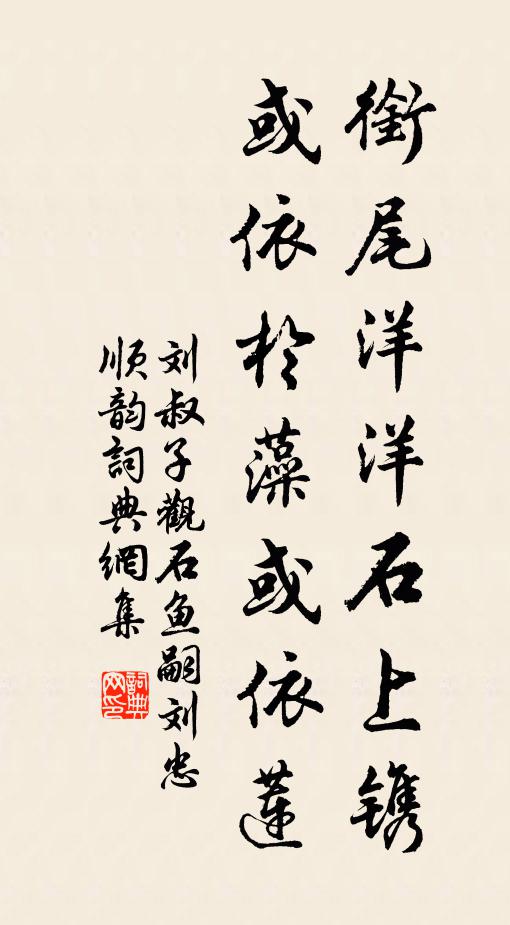 銜尾洋洋石上镌
或依於藻或依蓮
刘叔子觀石鱼嗣刘忠
順韵詞典網集
詞典网印